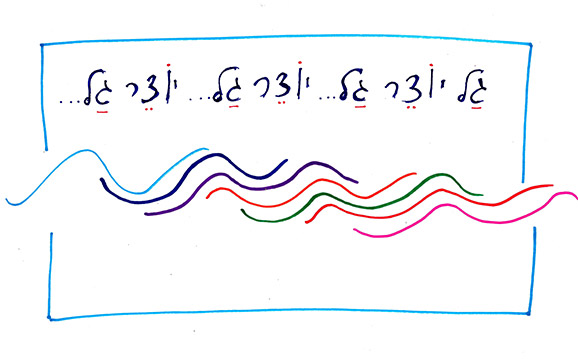 גַל יוֹצֵר גַל... יוֹצֵר גַל... יוֹצֵר גַל...